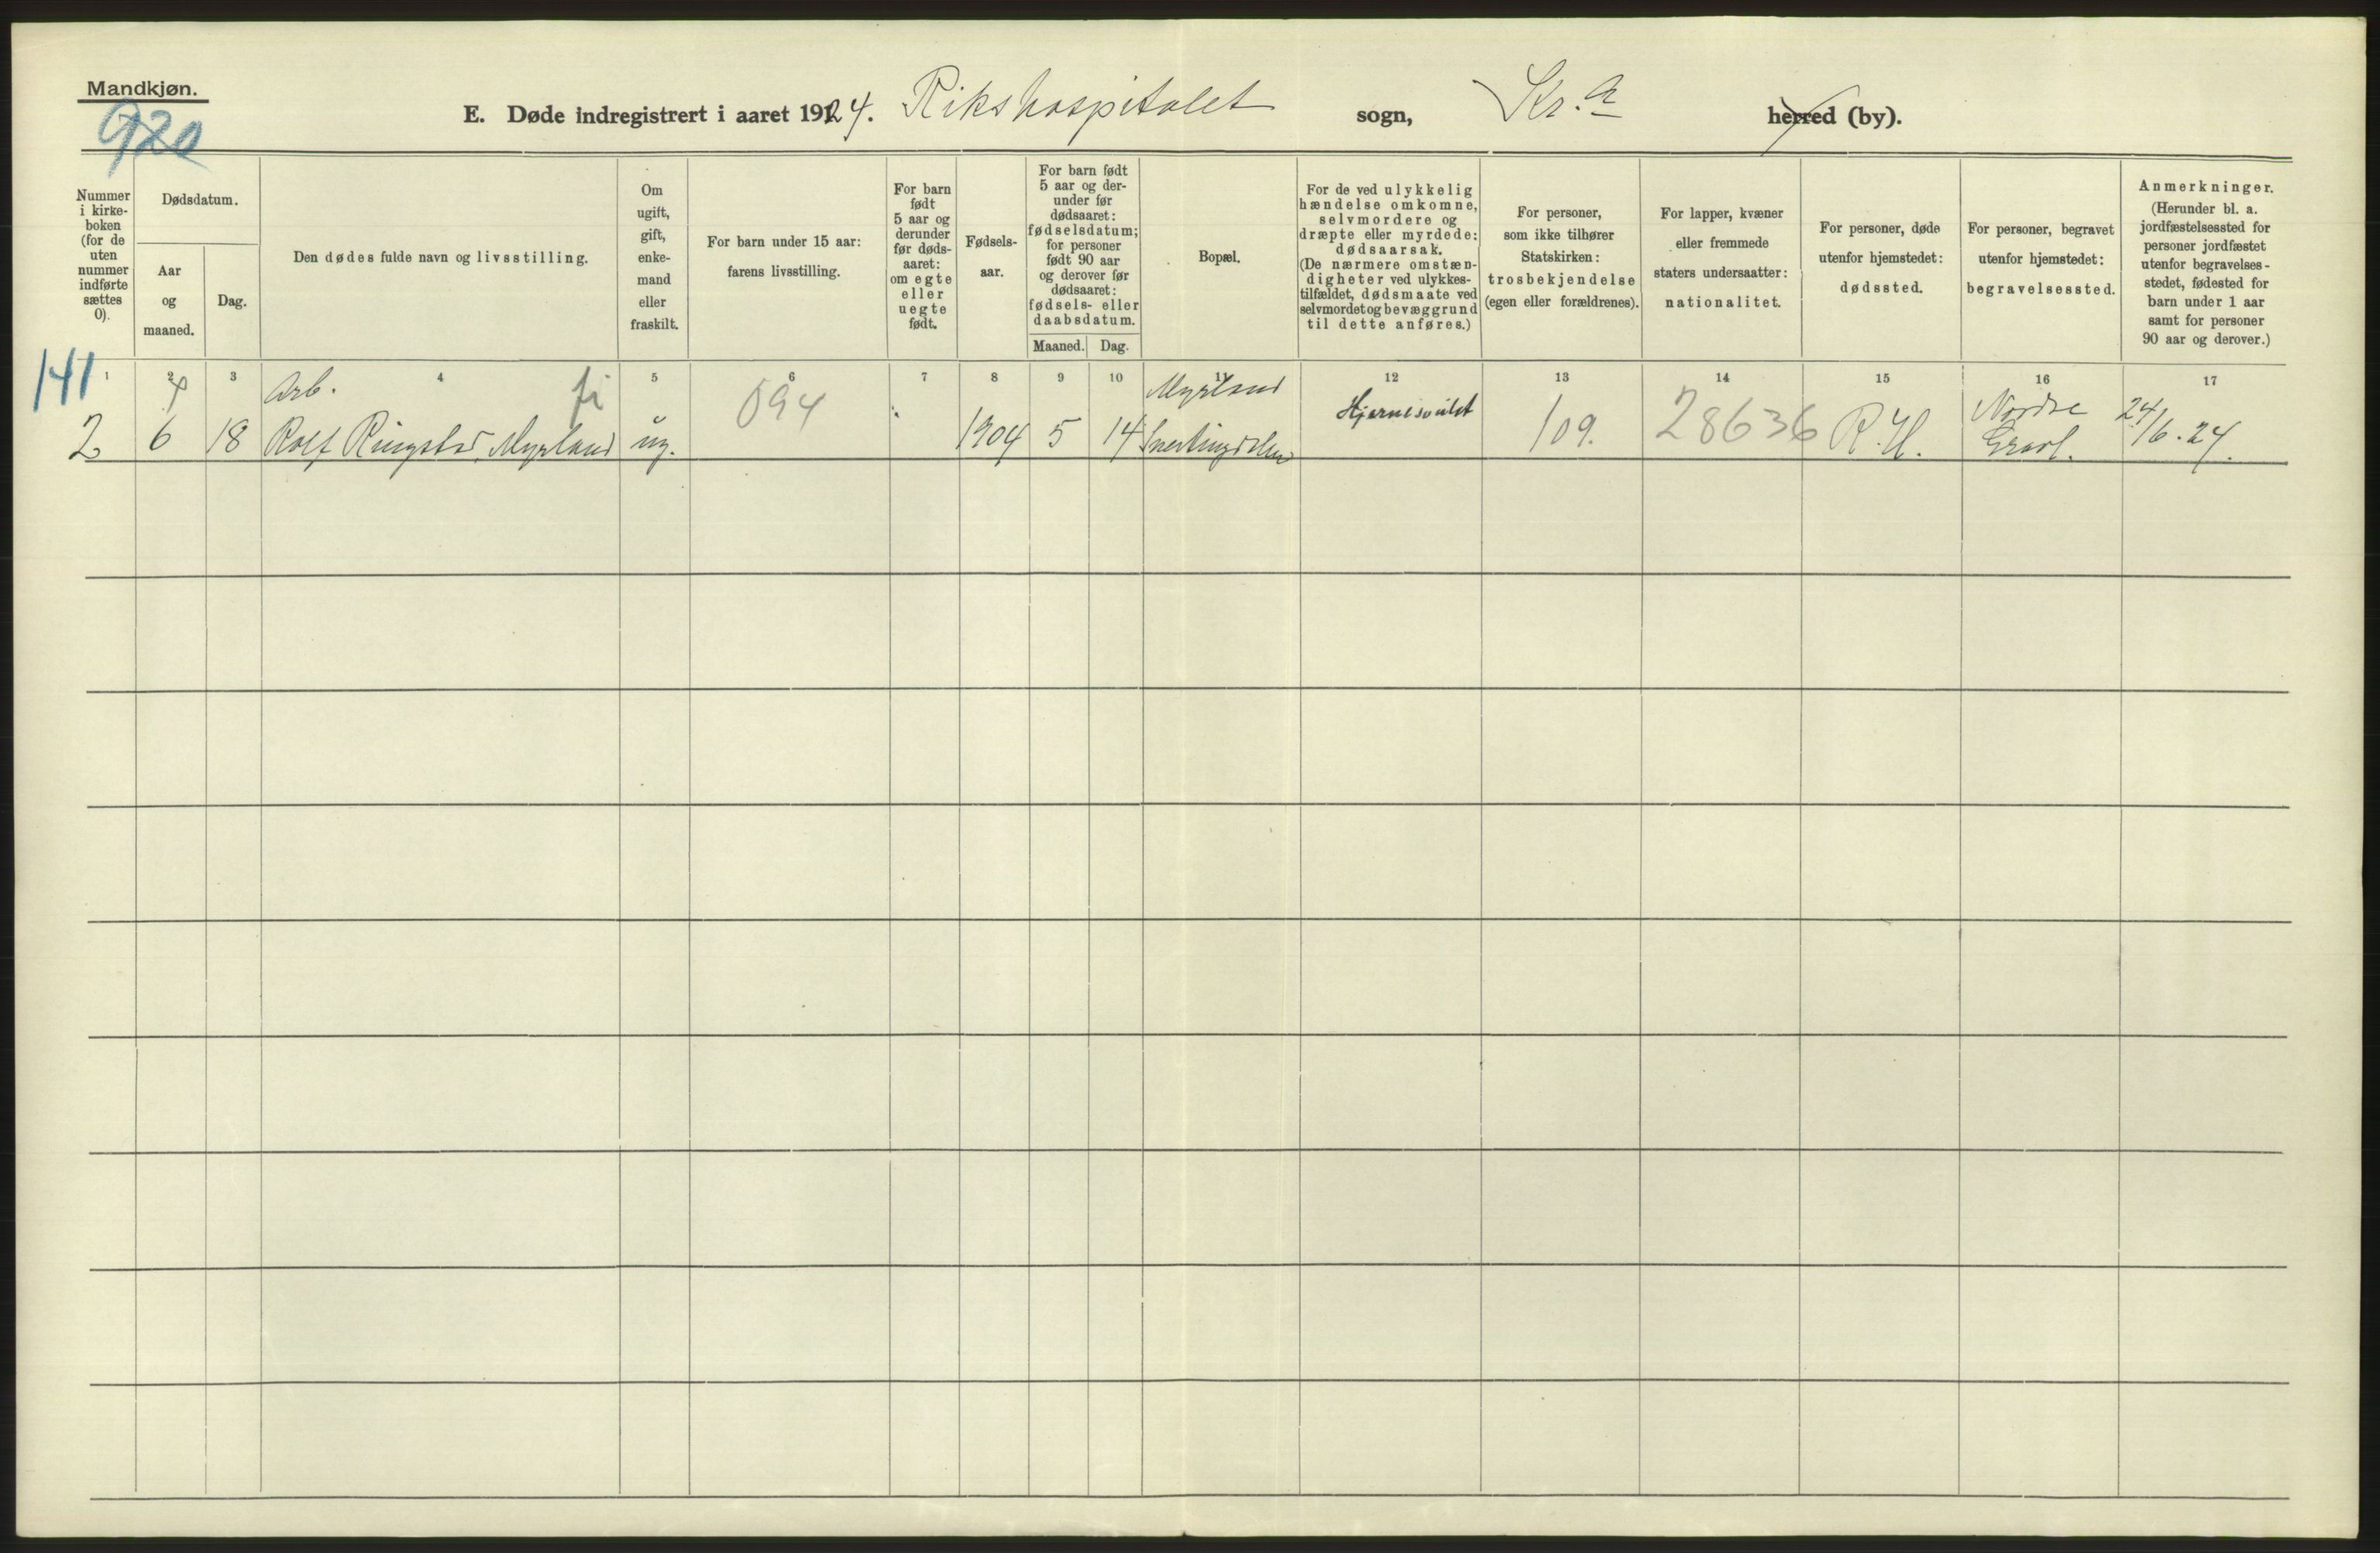 Mandkjøn.
920
E. Døde indregistrert i aaret 1924. Rikshospitalet sogn, Kr.a herred (by).
Nummer
i kirke-
boken
(for de
uten
nummer
indførte
sættes
0).
Dødsdatum.
Aar
og
maaned.
Dag.
Den dødes fulde navn og livsstilling.
Om
ugift,
gift,
enke-
mand
eller
fraskilt.
For barn under 15 aar:
farens livsstilling.
For barn
født
5 aar og
derunder
før døds-
aaret:
om egte
eller
uegte
født.
Fødsels-
aar.
For barn født
5 aar og der-
under før
dødsaaret:
fødselsdatum;
for personer
født 90 aar
og derover før
dødsaaret:
fødsels- eller
daabsdatum.
Maaned.
Dag.
Bopæl.
For de ved ulykkelig
hændelse omkomne,
selvmordere og
dræpte eller myrdede:
dødsaarsak.
(De nærmere omstæn-
digheter ved ulykkes-
tilfældet, dødsmaate ved
selvmordet og bevæggrund
til dette anføres.)
For personer,
som ikke tilhører
Statskirken:
trosbekjendelse
(egen eller forældrenes).
For lapper, kvæner
eller fremmede
staters undersaatter:
nationalitet.
For personer, døde
utenfor hjemstedet:
dødssted.
For personer, begravet
utenfor hjemstedet:
begravelsessted.
Anmerkninger.
(Herunder bl. a.
jordfæstelsessted for
personer jordfæstet
utenfor begravelses-
stedet, fødested for
barn under 1 aar
samt for personer
90 aar og derover.)
1 2 3 4 5 6 7 8 9 10 11 12 13 14 15 16 17
141 Arb. fi 094 Myrland Hjernesvulst Nordre
2 6 18 Rolf Ringstad Myrland ug. 1904 5 14 Snertingdalen 109. 28636 R.H. Gravl. 24/6.24.